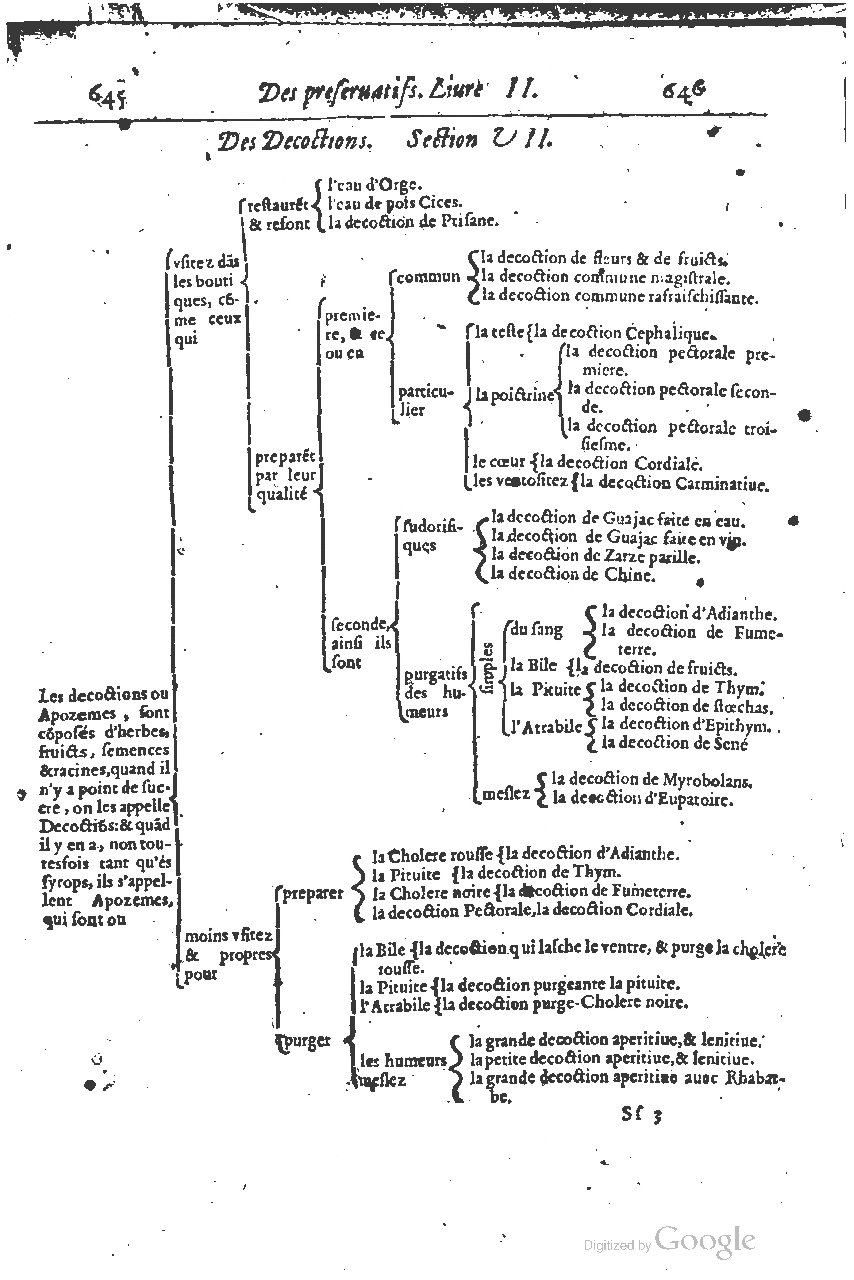 645
Des preseruatifs. Liure II.
646
Des Decoctions. Section VII.
Les decoctions ou
Apozemes, sont
cōposés d'herbes,
fruicts, semences
& racines, quand il
n'y a point de suc-
cre, on les appelle
Decoctiōs: & quād
il y en a, non tou-
tesfois tant qu'és
syrops, ils s'appel-
lent Apozemes,
qui sont ou
vsitez dās
les bouti
ques, cō-
me ceux
qui
restaurēt
& refont
l'eau d'Orge.
l'eau de pois Cices.
la decoction de Ptisane.
preparēt
par leur
qualité
premie-
re, & ce
ou en
commun
la decoction de fleurs & de fruicts.
la decoction commune magistrale.
la decoction commune rafraischissante.
particu-
lier
la teste {la decoction Cephalique.
la poictrine
la decoction pectorale pre-
miere.
la decoction pectorale secon-
de.
la decoction pectorale troi-
siesme.
le cœur {la decoction Cordiale.
les ventositez {la decoction Carminatiue.
seconde,
ainsi ils
sont
sudorifi-
ques
la decoction de Guajac faite en eau.
la decoction de Guajac faite en vin.
la decoction de Zarze parille.
la decoction de Chine.
purgatifs
des hu-
meurs
simples
du sang
la decoction d'Adianthe.
la decoction de Fume-
terre.
la Bile {la decoction de fruicts.
la Pituite
la decoction de Thym.
la decoction de stœchas.
l'Atrabile
la decoction d'Epithym.
la decoction de Sené
meslez
la decoction de Myrobolans.
la decoction d'Eupatoire.
moins vsitez
& propres
pour
preparer
la Cholere rousse {la decoction d'Adianthe.
la Pituite {la decoction de Thym.
la Cholere noire {la decoction de Fumeterre.
la decoction Pectorale, la decoction Cordiale.
purger
la Bile {la decoction qui lasche le ventre, & purge la cholere
rousse.
la Pituite {la decoction purgeante la pituite.
l'Atrabile {la decoction purge-Cholere noire.
les humeurs
meslez
la grande decoction aperitiue, & lenitiue.
la petite decoction aperitiue, & lenitiue.
la grande decoction aperitiue auec Rhabar-
be.
Sf 3
Digitized by Google